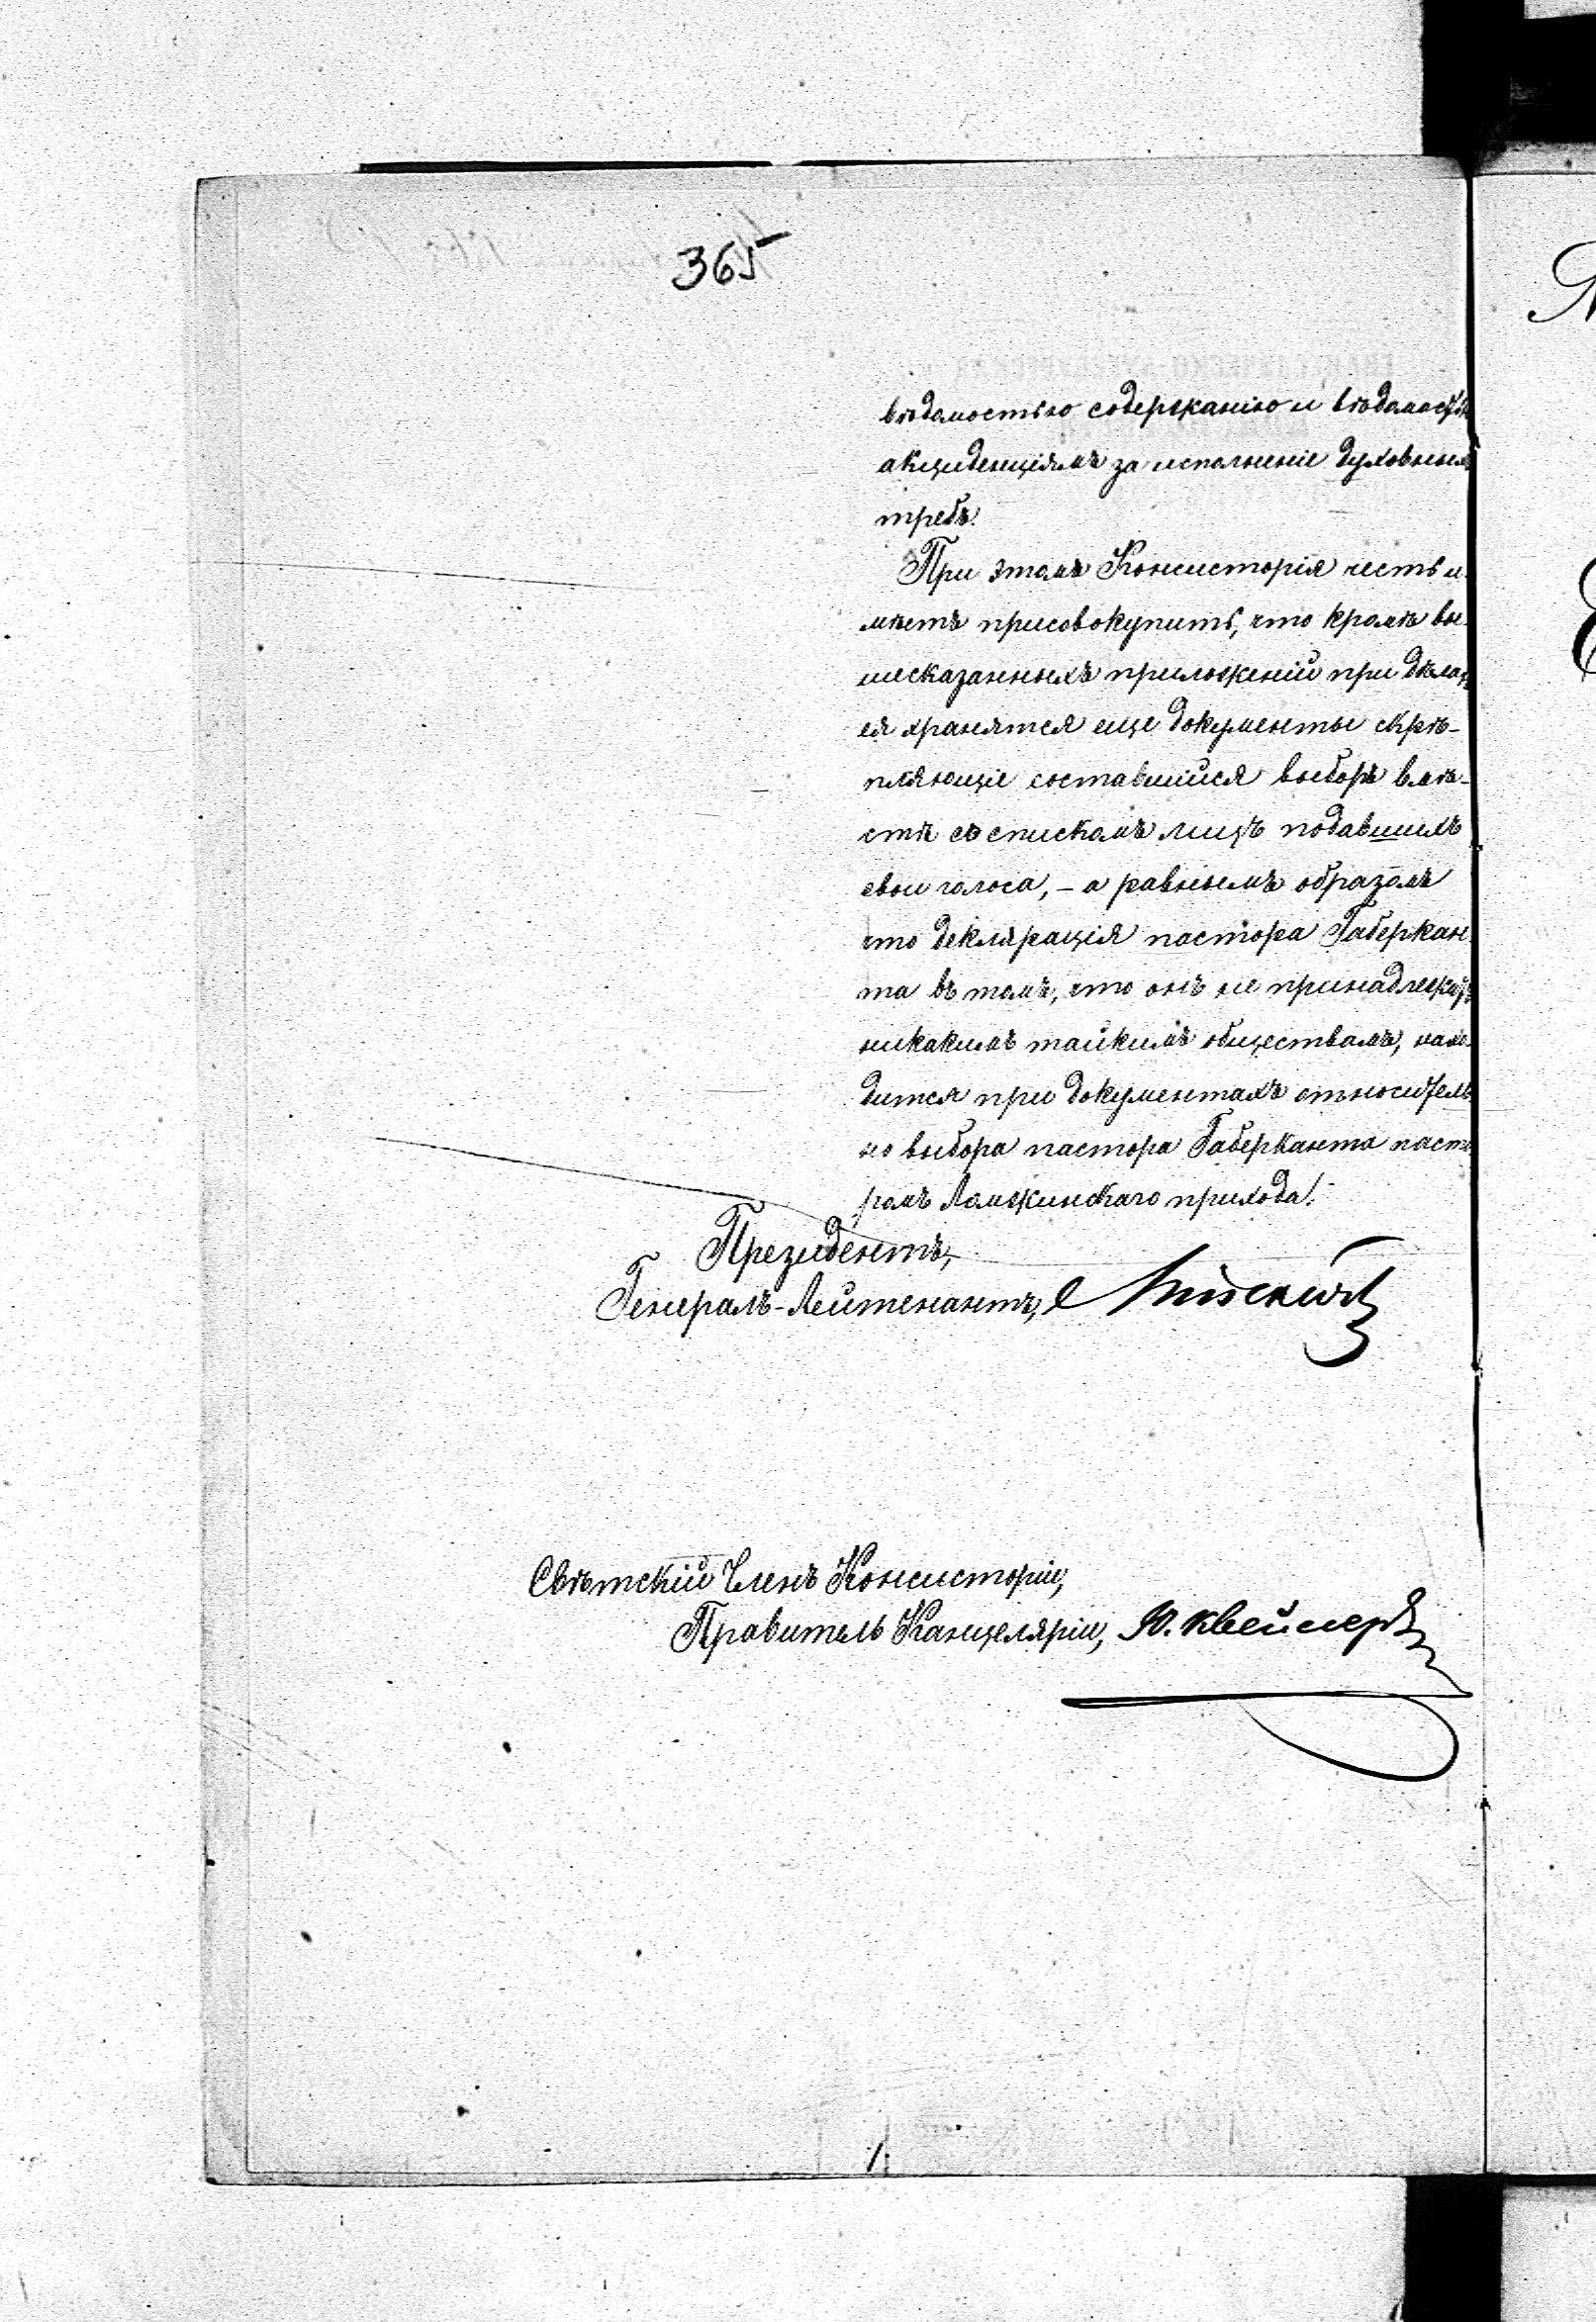 365
вѣдомостью содержанію и вѣдомость
акциденціямъ за исполненіе духовныхъ
требъ.
При этомъ Консисторія честь и-
мѣетъ присовокупить, что кромѣ вы-
шесказанныхъ приложеній при дѣлахъ
ея хранятся еще документы скрѣ-
пляющіе составшійся выборъ вмѣ-
стѣ съ спискомъ лицъ подавшихъ
свои голоса, - а равнымъ образомъ
что деклярація пастора Габеркан-
та въ томъ, что онъ не принадлежитъ
никакимъ тайнимъ обществамъ, нахо-
дится при документахъ относитель-
но выбора пастора Габерканта пасто-
ромъ Ломжинскаго прихода.
Президентъ,
Генералъ-Лейтенантъ,
Свѣтскій Членъ Консисторіи,
Правитель Канцеляріи, Ю.